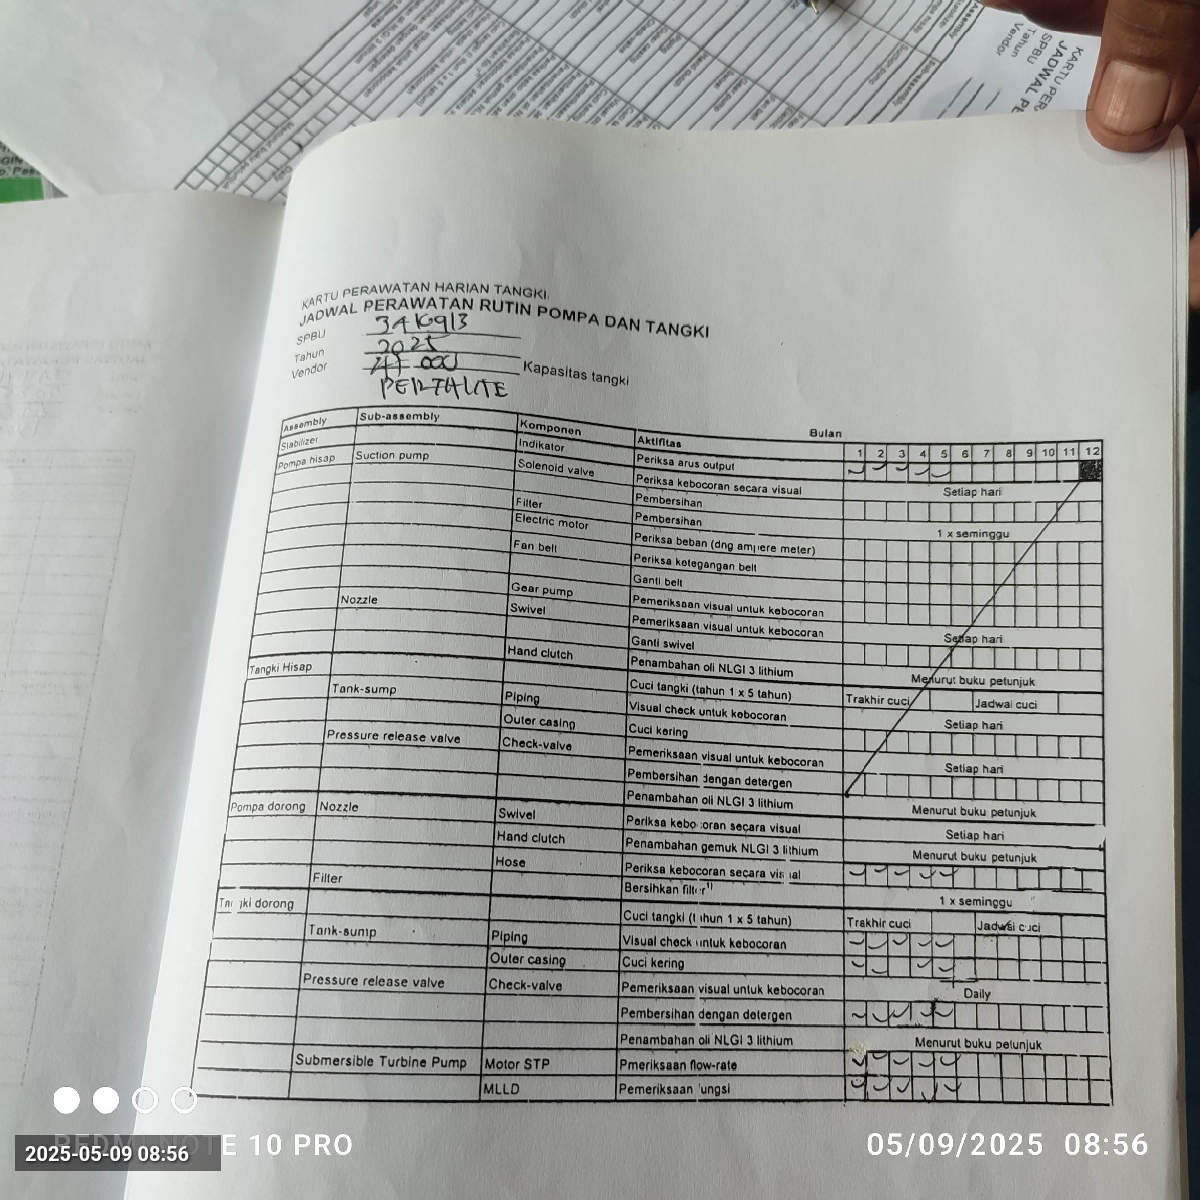 KARTU PERAWATAN HARIAN TANGKI
JADWAL PERAWATAN RUTIN POMPA DAN TANGKI
SPBU 3416913
Tahun 2025
Vendor Kapasitas tangki
Assembly Sub-assembly Komponen Aktifitas Bulan
1 2 3 4 5 6 7 8 9 10 11 12
Stabilizer Indikator Periksa arus output
Pompa hisap Suction pump Solenoid valve Periksa kebocoran secara visual Setiap hari
Pembersihan
Filter Pembersihan 1 x seminggu
Electric motor Periksa beban (dng ampere meter)
Fan belt Periksa ketegangan belt
Ganti belt
Gear pump Pemeriksaan visual untuk kebocoran
Nozzle Swivel Pemeriksaan visual untuk kebocoran Setiap hari
Ganti swivel
Hand clutch Penambahan oli NLGI 3 lithium Menurut buku petunjuk
Tangki Hisap Cuci tangki (tahun 1 x 5 tahun) Trakhir cuci Jadwal cuci
Tank-sump Piping Visual check untuk kebocoran Setiap hari
Outer casing Cuci kering
Pressure release valve Check-valve Pemeriksaan visual untuk kebocoran Setiap hari
Pembersihan dengan detergen
Penambahan oli NLGI 3 lithium Menurut buku petunjuk
Pompa dorong Nozzle Swivel Periksa kebocoran secara visual Setiap hari
Hand clutch Penambahan gemuk NLGI 3 lithium Menurut buku petunjuk
Hose Periksa kebocoran secara visual
Filter Bersihkan filter 1 x seminggu
Tangki dorong Cuci tangki (tahun 1 x 5 tahun) Trakhir cuci Jadwal cuci
Tank-sump Piping Visual check untuk kebocoran
Outer casing Cuci kering
Pressure release valve Check-valve Pemeriksaan visual untuk kebocoran Daily
Pembersihan dengan detergen
Penambahan oli NLGI 3 lithium Menurut buku petunjuk
Submersible Turbine Pump Motor STP Pmeriksaan flow-rate
MLLD Pemeriksaan fungsi
NOTE 10 PRO
2025-05-09 08:56
05/09/2025 08:56